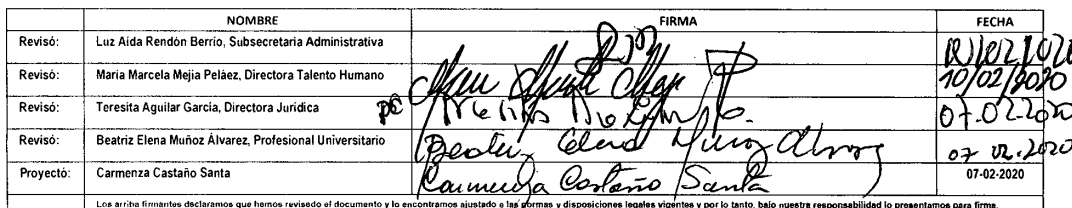 NOMBRE FIRMA FECHA
Revisó: Luz Aída Rendón Berrío, Subsecretaria Administrativa
Revisó: María Marcela Mejía Peláez, Directora Talento Humano 10/02/2020
Revisó: Teresita Aguilar García, Directora Jurídica 07-02-2020
Revisó: Beatriz Elena Muñoz Álvarez, Profesional Universitario Beatriz Elena Muñoz Álvarez 07-02-2020
Proyectó: Carmenza Castaño Santa Carmenza Castaño Santa 07-02-2020
Los arriba firmantes declaramos que hemos revisado el documento y lo encontramos ajustado a las normas y disposiciones legales vigentes y por lo tanto, bajo nuestra responsabilidad lo presentamos para firma.